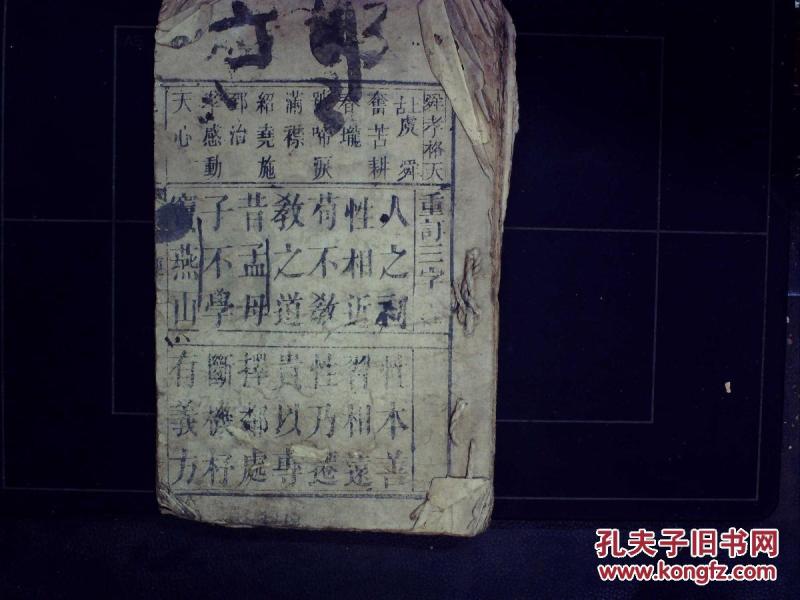 舜孝格天
虞舜
奮苦耕
春壠
號啼淚
滿襟
紹堯施
郅治
孝感動
天心
重訂三字
人之初
性相近
苟不教
教之道
昔孟母
子不學
竇燕山
性本善
習相遠
性乃遷
貴以專
擇鄰處
斷機杼
有義方
孔夫子旧书网
www.kongfz.com